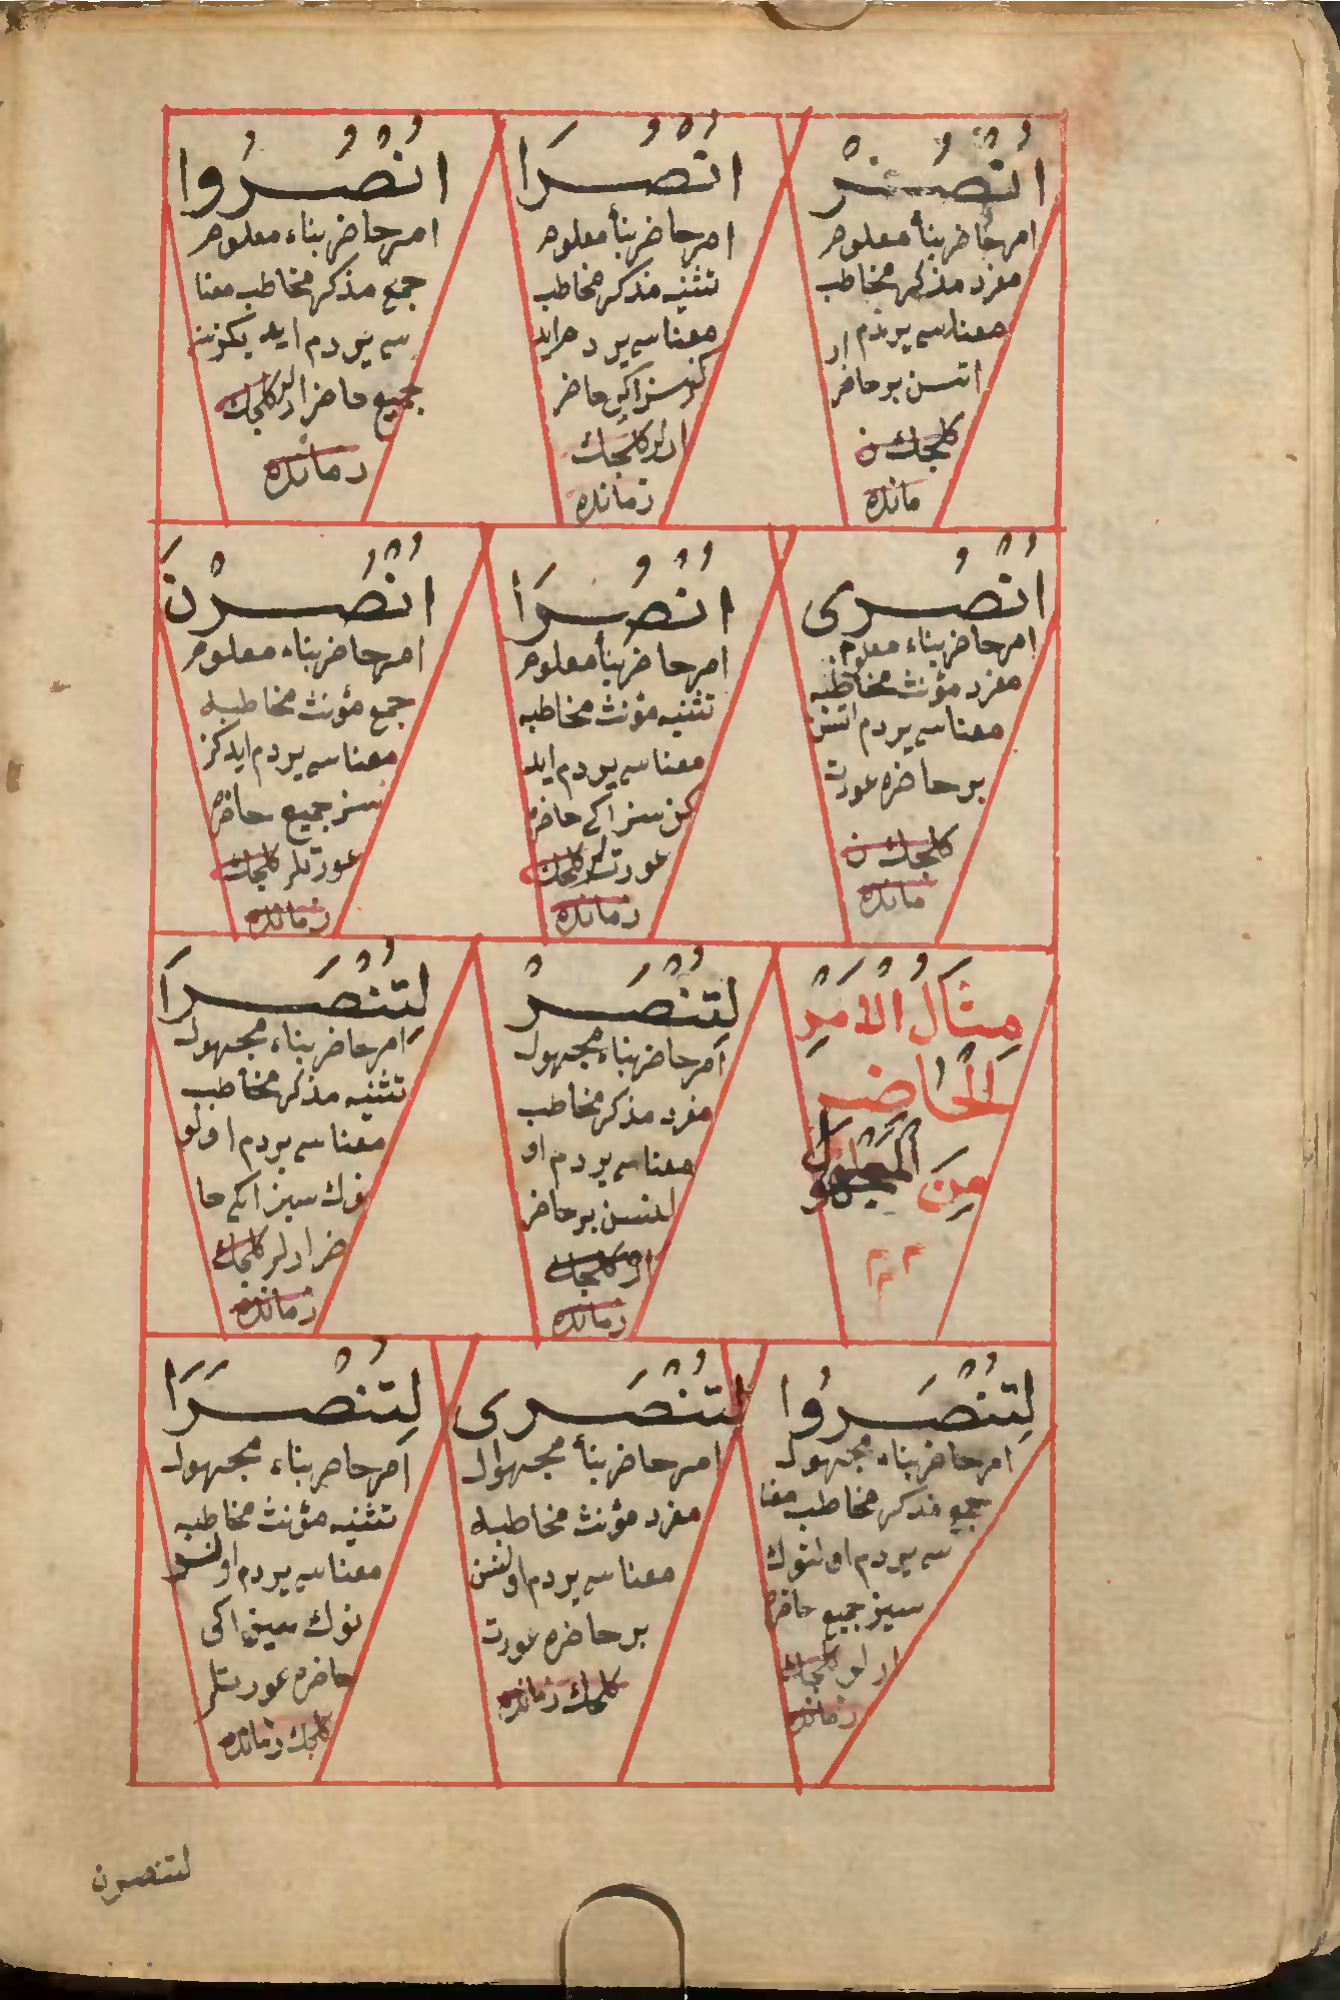 اُنْصُرْ
امر حاضر بناء معلوم
مفرد مذكر مخاطب
معناسه يردم ار
اتسن بر حاضر
كلجك ن
مانده
اُنْصُرَا
امر حاضر بناء معلوم
تثنيه مذكر مخاطب
معناسه يردم ايد
كز سز اكي حاضر
ارلر كلجك
زمانده
اُنْصُرُوا
امر حاضر بناء معلوم
جمع مذكر مخاطب معنا
سه يردم ايديكز سز
جميع حاضر ارلر كلجك
زمانده
اُنْصُرِى
امر حاضر بناء معلوم
مفرد مؤنث مخاطبه
معناسه يردم اتسن
بر حاضره عورت
كلجك ن
مانده
اُنْصُرَا
امر حاضر بناء معلوم
تثنيه مؤنث مخاطبه
معناسه يردم ايد
كز سز اكي حاضره
عورتلر كلجك
زمانده
اُنْصُرْنَ
امر حاضر بناء معلوم
جمع مؤنث مخاطبه
معناسه يردم ايدكز
سز جميع حاضره
عورتلر كلجك
زمانده
مِثَالُ الْاَمْرِ
الْحَاضِرِ
مِنَ الْمَجْهُولِ
م م م
لِتُنْصَرْ
امر حاضر بناء مجهول
مفرد مذكر مخاطب
معناسه يردم او
لنسن بر حاضر
ار كلجك
زمانده
لِتُنْصَرَا
امر حاضر بناء مجهول
تثنيه مذكر مخاطب
معناسه يردم اولو
نوك سيز ايكي حا
ضر ارلر كلجك
زمانده
لِتُنْصَرُوا
امر حاضر بناء مجهول
جمع مذكر مخاطب معنا
سه يردم اولنوك
سيز جميع حاضره
ارلر كلجك
زمانده
لِتُنْصَرِى
امر حاضر بناء مجهول
مفرد مؤنث مخاطبه
معناسه يردم اولنسن
بر حاضره عورت
كلجك زمانده
لِتُنْصَرَا
امر حاضر بناء مجهول
تثنيه مؤنث مخاطبه
معناسه يردم اولنو
نوك سيز اكى
حاضره عورتلر
كلجك زمانده
لتنصرن